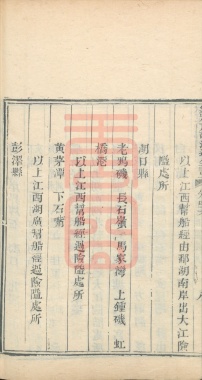 以上江西幫船經由鄱湖南岸出大江險
隘處所
湖口縣
老鸦磯 長石嘴 馬家灣 上鐘磯 虹
橋港
以上江西幫船經過險隘處所
黄茅潭 下石嘴
以上江西湖廣幫船經過險隘處所
彭澤縣